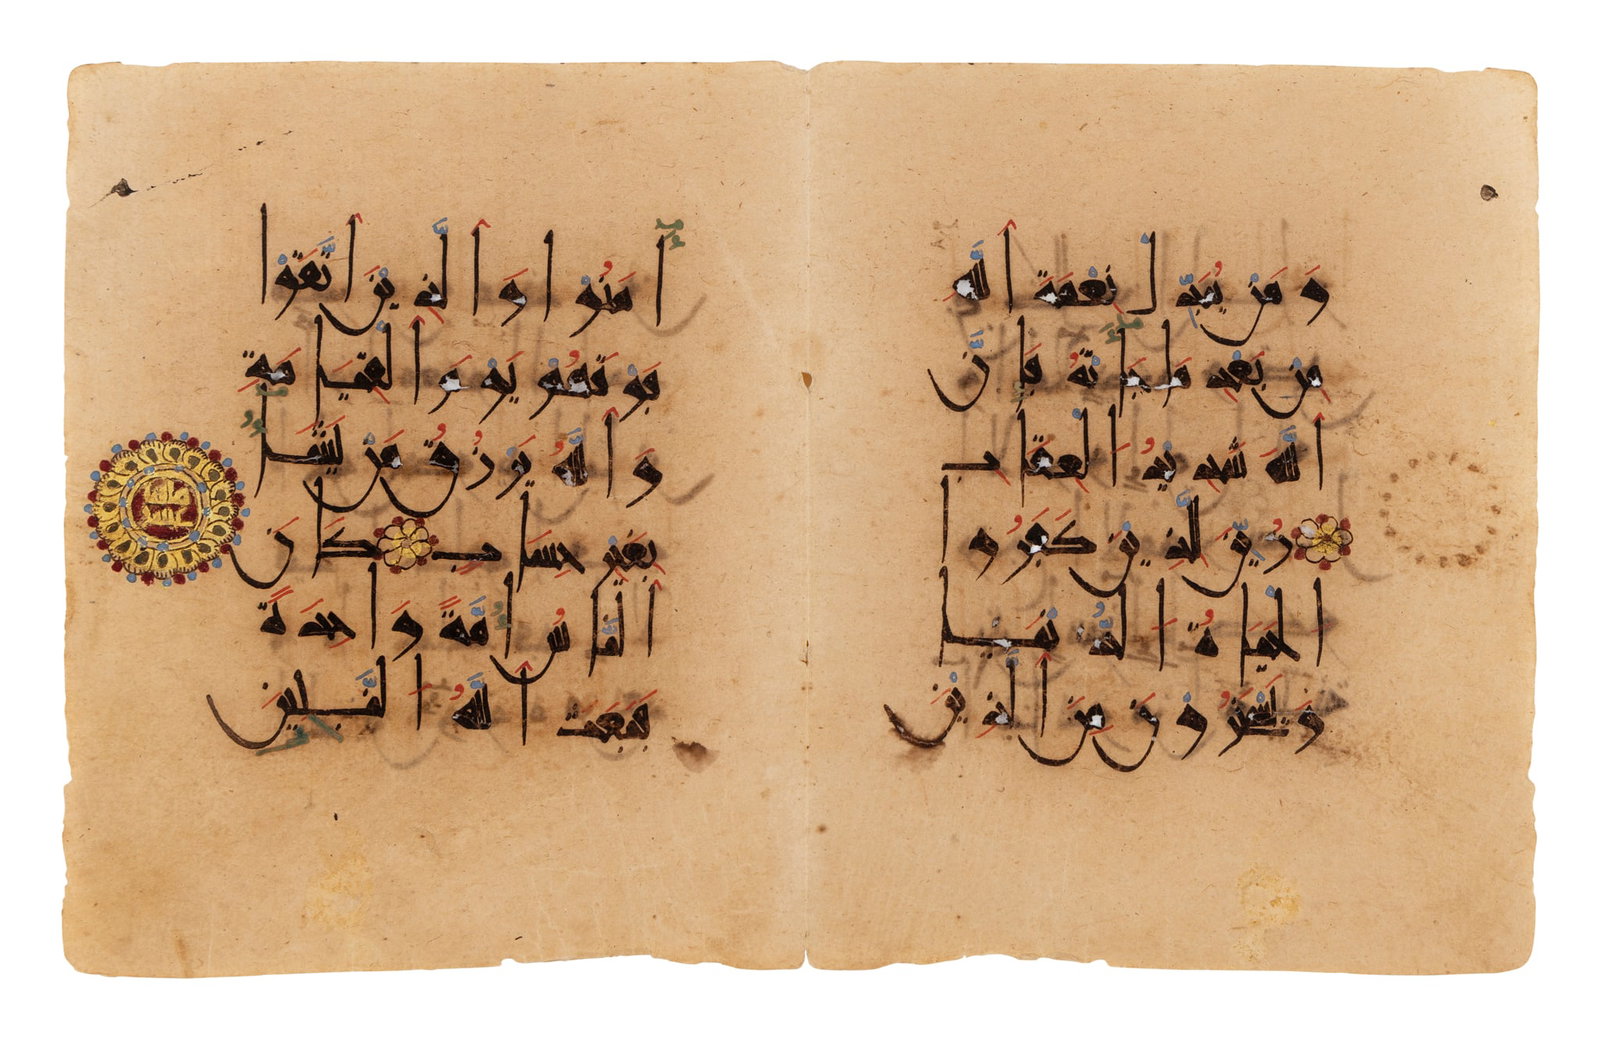 وَمَنْ يُبَدِّلْ نِعْمَةَ اللَّهِ
مِنْ بَعْدِ مَا جَاءَتْهُ فَإِنَّ
اللَّهَ شَدِيدُ الْعِقَابِ
زُيِّنَ لِلَّذِينَ كَفَرُوا
الْحَيَاةُ الدُّنْيَا
وَيَسْخَرُونَ مِنَ الَّذِينَ
آمَنُوا وَالَّذِينَ اتَّقَوْا
فَوْقَهُمْ يَوْمَ الْقِيَمَةِ
وَاللَّهُ يَرْزُقُ مَنْ يَشَاءُ
بِغَيْرِ حِسَابٍ كَانَ
النَّاسُ أُمَّةً وَاحِدَةً
فَبَعَثَ اللَّهُ النَّبِيِّينَ